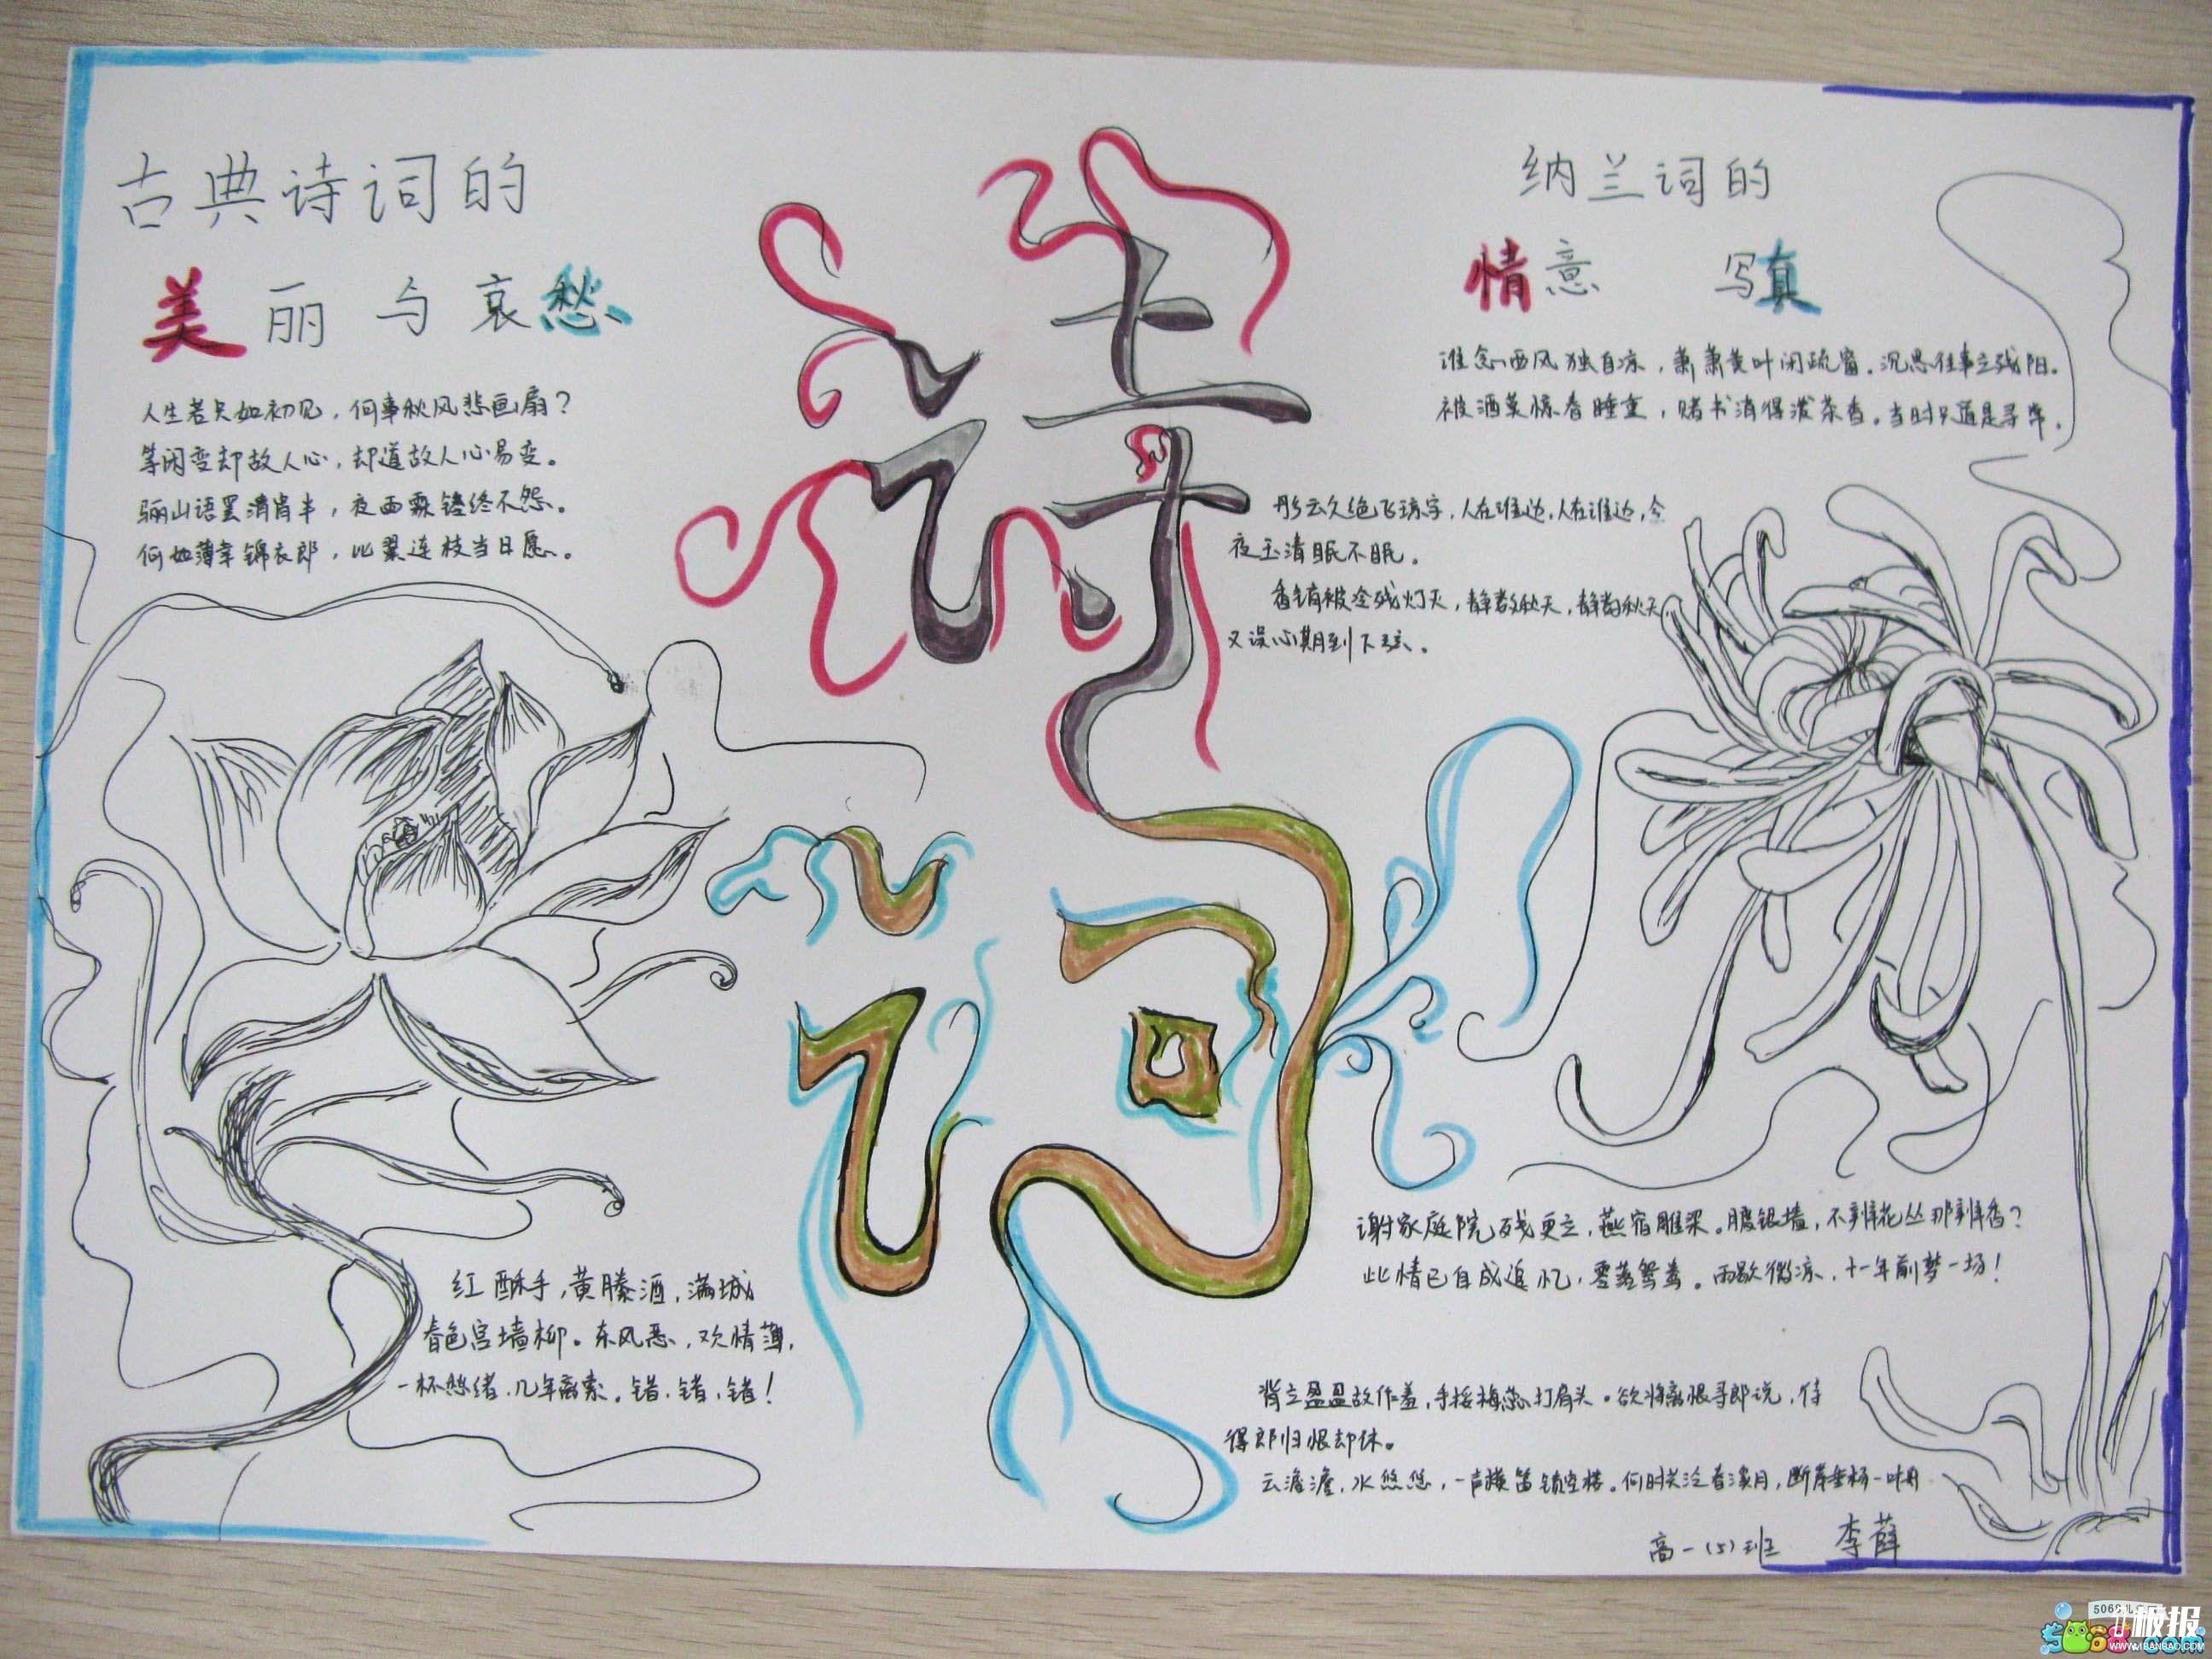 古典诗词的
美丽与哀愁
人生若只如初见，何事秋风悲画扇？
等闲变却故人心，却道故人心易变。
骊山语罢清宵半，夜雨霖铃终不怨。
何如薄幸锦衣郎，比翼连枝当日愿。
诗词
红酥手，黄滕酒，满城
春色宫墙柳。东风恶，欢情薄，
一杯愁绪，几年离索。错，错，错！
纳兰词的
情意 写真
谁念西风独自凉，萧萧黄叶闭疏窗。沉思往事立残阳。
被酒莫惊春睡重，赌书消得泼茶香。当时只道是寻常。
彤云久绝飞琼字，人在谁边，人在谁边，今
夜玉清眠不眠。
香销被冷残灯灭，静数秋天，静数秋天，
又误心期到下弦。
谢家庭院残更立，燕宿雕梁。月度银墙，不辨花丛那辨香？
此情已自成追忆，零落鸳鸯。雨歇微凉，十一年前梦一场！
背立盈盈故作羞，手挼梅蕊打肩头。欲将离恨寻郎说，待
得郎归恨却休。
云澹澹，水悠悠，一声横笛锁空楼。何时共泛春溪月，断岸垂杨一叶舟
高一(5)班 李薛
极报
WWW.1BANBAO.COM